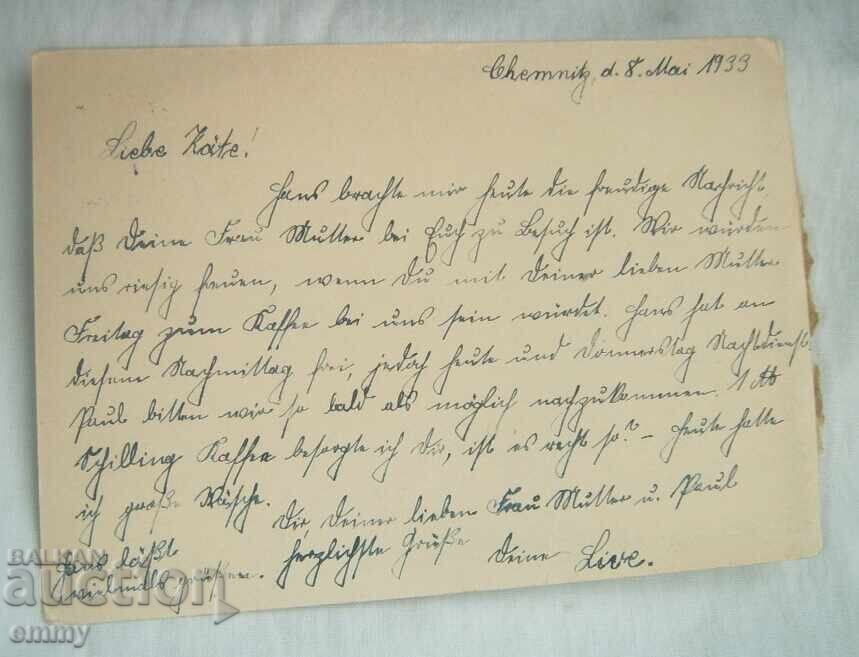 Chemnitz, d. 8. Mai 1933
Liebe Käte!
Hans brachte mir heute die freudige Nachricht,
daß Deine Frau Mutter bei Euch zu Besuch ist. Wir würden
uns riesig freuen, wenn Du mit Deiner lieben Mutter
Freitag zum Kaffee bei uns sein würdet. Hans hat an
diesem Nachmittag frei, jedoch heute und Donnerstag Nachtdienst.
Paul bitten wir so bald als möglich nachzukommen. 1 ℔
Schilling Kaffee besorgte ich Dir, ist es recht so? – Heute hatte
ich große Wäsche.
Dir, Deiner lieben Frau Mutter u. Paul
herzlichste Grüße
Deine
Hans läßt
vielmals grüßen.
BALKAN
auction
emmy